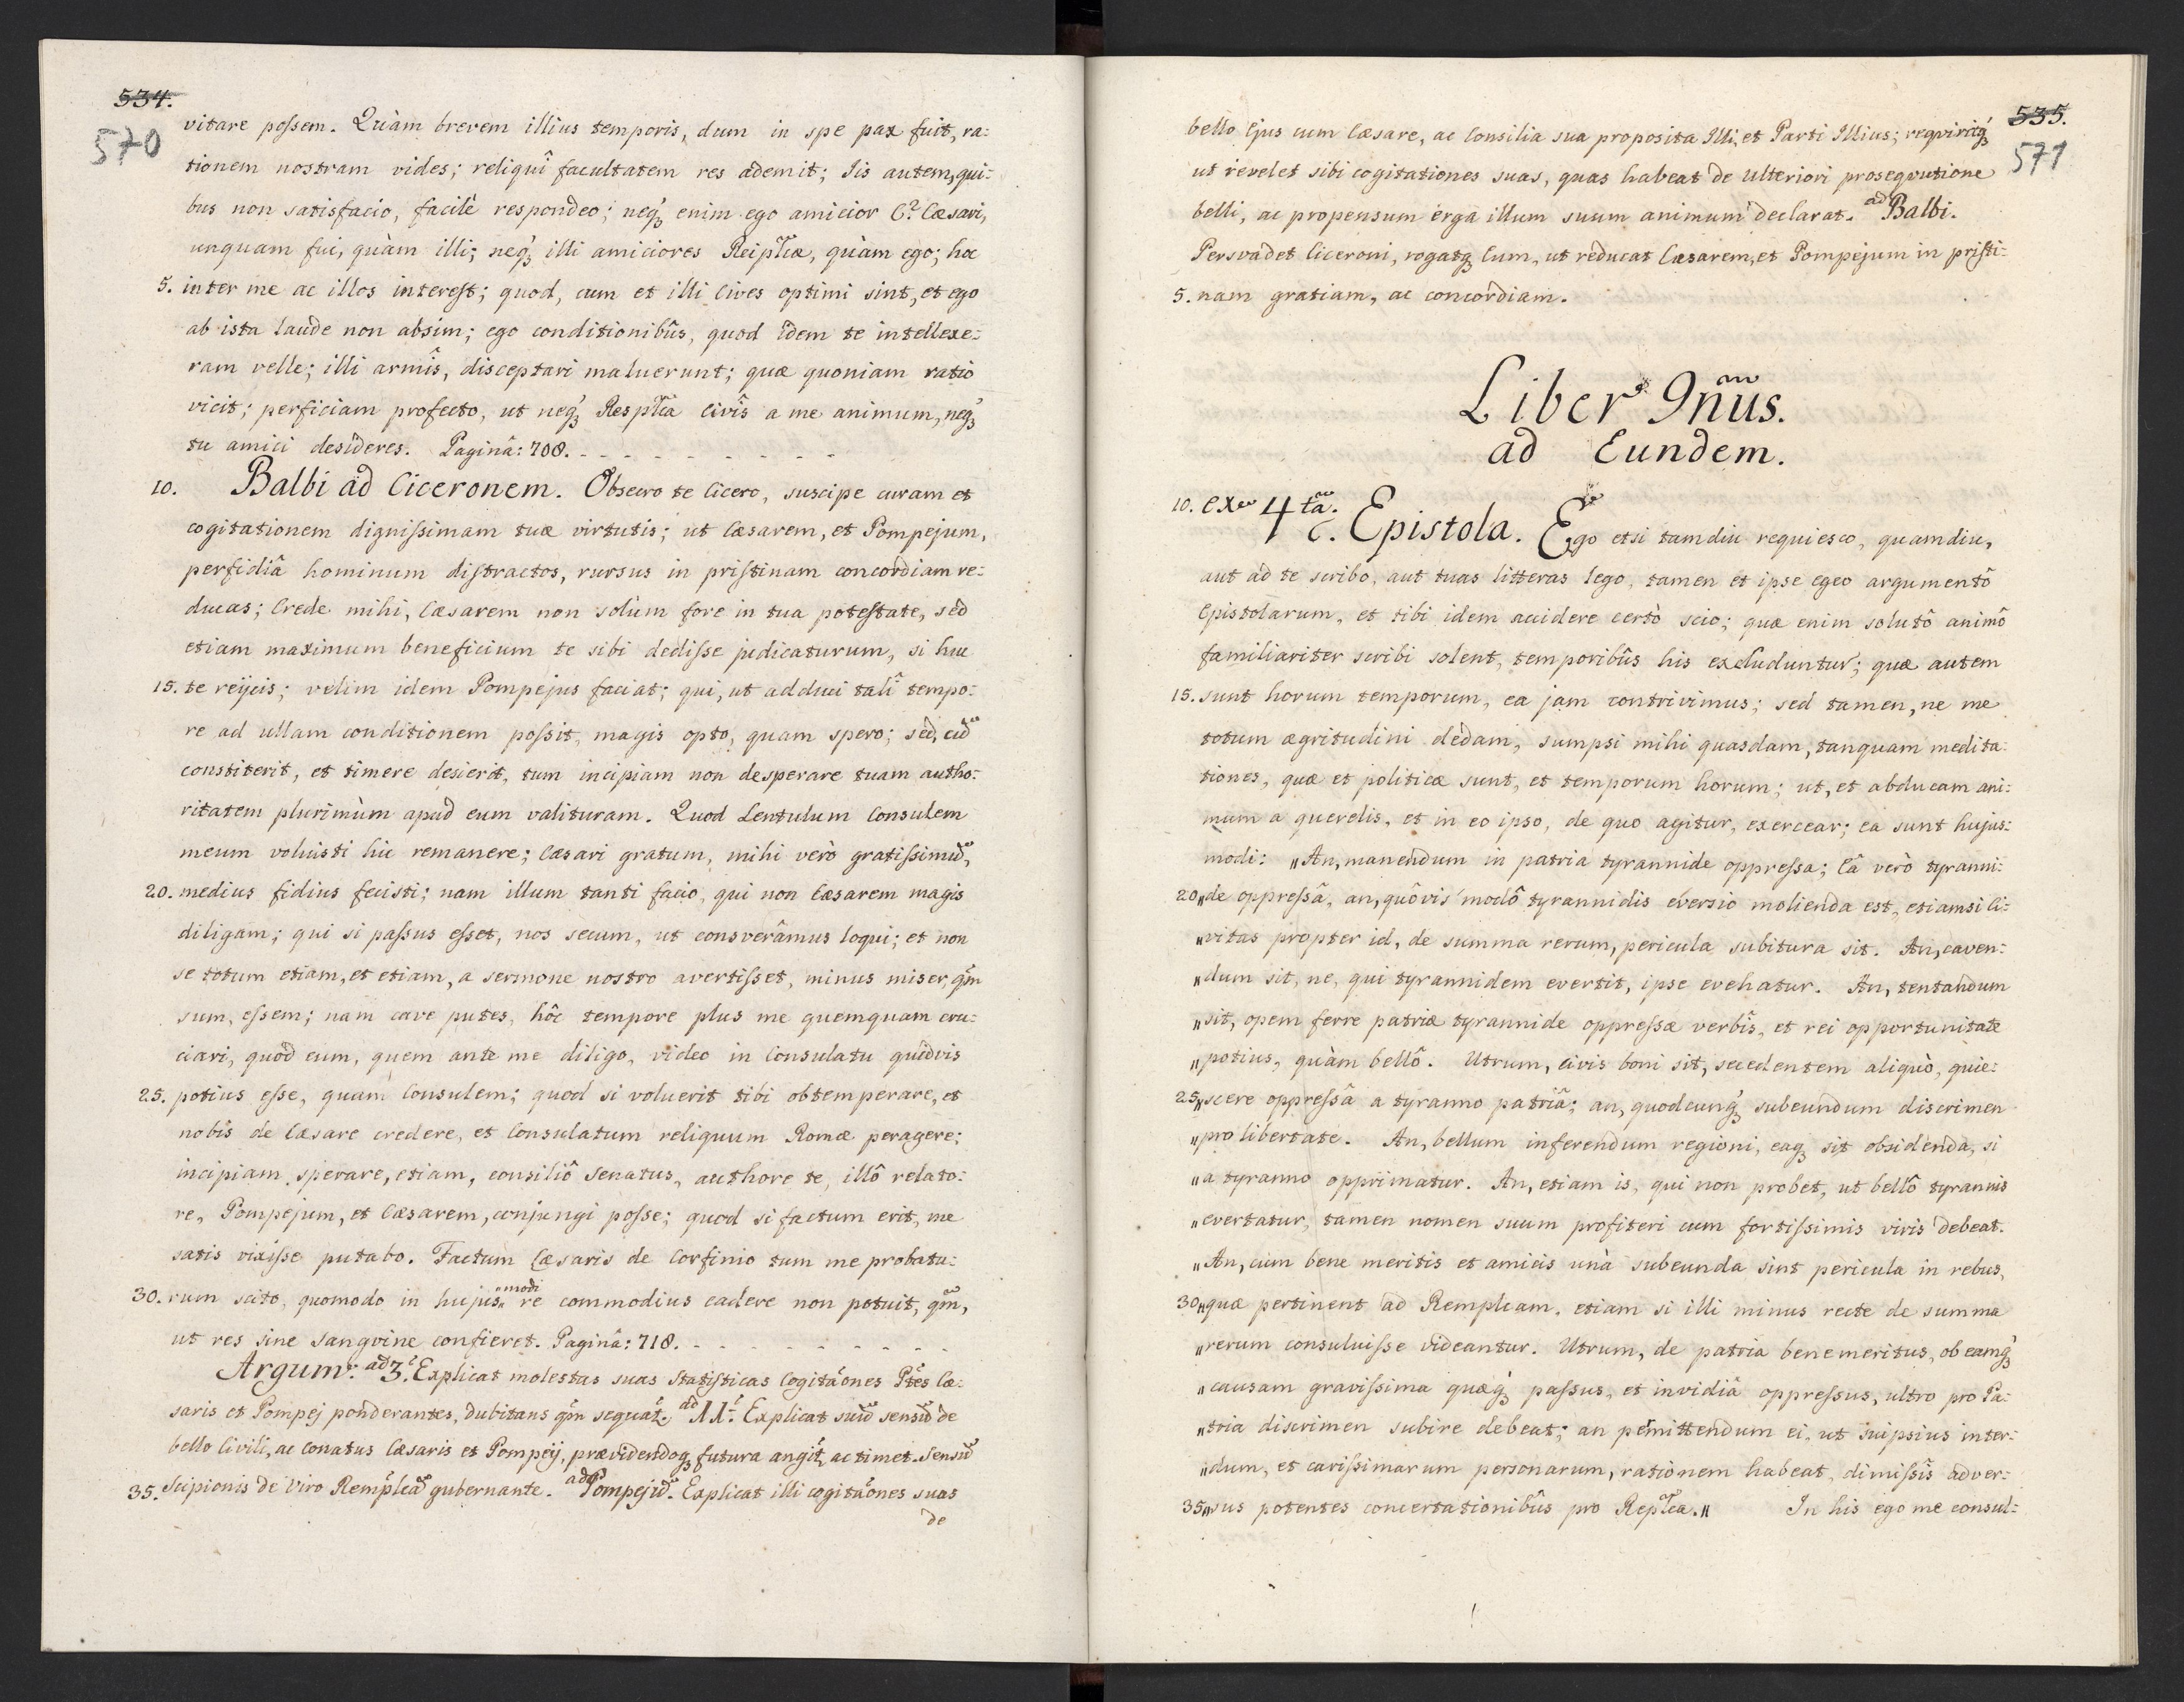 534.
570
vitare possem. Quàm brevem illius temporis, dum in spe pax fuit, ra:
tionem nostram vides; reliquî facultatem res ademit; Iis autem, qui:
bus non satisfacio, facilè respondeo; neq́ꝫ enim ego amicior C? Cæsari,
unquam fui, quàm illi; neq́ꝫ illi amiciores Reipl̃cæ, quàm ego; hoc
5. inter me ac illos interest; quod, cum et illi Cives optimi sint, et ego
ab ista laude non absim; ego conditionibûs, quod idem te intellexe:
ram velle; illi armîs, disceptari maluerunt; quæ quoniam ratio
vicit; perficiam profecto, ut neq́ꝫ Respl̃ca Civîs a me animum, neq́ꝫ
tu amici desideres. Paginâ: 708. - - - - - - - - -
10. Balbi ad Ciceronem. Obsecro te Cicero, suscipe curam et
cogitationem dignissimam tuæ virtutis; ut Cæsarem, et Pompejum,
perfidiâ hominum distractos, rursus in pristinam concordiam re:
ducas; Crede mihi, Cæsarem non solùm fore in tua potestate, sed
etiam maximum beneficium te sibi dedisse judicaturum, si huc
15. te reijcis; velim idem Pompejus faciat; qui, ut adduci talî tempo:
re ad ullam conditionem possit, magis opto, quam spero; sed, cũ
constiterit, et timere desierit, tum incipiam non desperare tuam autho:
ritatem plurimùm apud eum valituram. Quod Lentulum Consulem
meum voluisti hic remanere; Cæsari gratum, mihi verò gratissimũ,
20. medius fidius fecisti; nam illum tanti facio, qui non Cæsarem magis
diligam; qui si passus esset, nos secum, ut consverâmus loqui; et non
se totum etiam, et etiam, a sermone nostro avertisset, minus miser, qm̃
sum, essem; nam cave putes, hôc tempore plus me quemquam cru:
ciari, quòd eum, quem ante me diligo, video in Consulatu quidvis
25. potius esse, quam Consulem; quod si voluerit tibi obtemperare, et
nobis de Cæsare credere, et Consulatum reliquum Romæ peragere;
incipiam sperare, etiam, consiliô Senatus, authore te, illô relato:
re, Pompejum, et Cæsarem, conjungi posse; quod si factum erit, me
satis vixisse putabo. Factum Cæsaris de Corfinio tum me probatu:
30. rum scito, quomodo in hujus„modi re commodius cadere non potuit, qm̃,
ut res sine sangvine confieret. Paginâ: 718. - - - - - - - - -
Argumᵗ: ad 3.? Explicat molestas suas statisticas Cogitãones Ptẽs Cæ:
saris et Pompej ponderantes, dubitans qm̃ sequát̃. ad 11.? Explicat suũ sensũ de
bello Civili, ac Conatus Cæsaris et Pompeij, prævidendoq́ꝫ futura angit̃, ac timet. Sensũ
35. Scipionis de Viro Rempl̃cã gubernante. ad Pompejũ. Explicat illi cogitãones suas
de
535.
571
bello Ejus cum Cæsare, ac Consilia sua proposita Illi, et Parti Illius; reqviritq́ꝫ
ut revelet sibi cogitationes suas, quas habeat de ulteriori proseqvutione
belli, ac propensum erga illum suum animum declarat. ad Balbi.
Persvadet Ciceroni, rogatq́ꝫ Eum, ut reducat Cæsarem, et Pompejum in pristi:
5. nam gratiam, ac concordiam.
Liber 9ñus.
ad Eundem.
10. ex 4tâ. C. Epistola. Ego etsi tamdiu requiesco, quamdiu,
aut ad te scribo, aut tuas litteras lego, tamen et ipse egeo argumentô
Epistolarum, et tibi idem accidere certò scio; quæ enim solutô animô
familiariter scribi solent, temporibûs his excluduntur; quæ autem
15. sunt horum temporum, ea jam contrivimus; sed tamen, ne me
totum ægritudini dedam, sumpsi mihi quasdam, tanquam medita:
tiones, quæ et politicæ sunt, et temporum horum; ut, et abducam ani:
mum a querelis, et in eo ipso, de quo agitur, exercear; ea sunt hujus:
modi: „An, manendum in patria tyrannide oppressa; Eâ verò tyranni:
20.„de oppressâ, an, quôvis modô tyrannidis eversio molienda est, etiamsi Ci:
„vitas propter id, de summa rerum, pericula subitura sit. An, caven:
„dum sit, ne, qui tyrannidem evertit, ipse evehatur. An, tentandum
„sit, opem ferre patriæ tyrannide oppressæ verbîs, et rei opportunitate
„potius, quàm bellô. Utrum, civis boni sit, secedentem aliquò, quie:
25.„scere oppressâ a tyranno patriâ; an, quodcunq́ꝫ subeundum discrimen
„pro libertate. An, bellum inferendum regioni, eaq́ꝫ sit obsidenda, si
„a tyranno opprimatur. An, etiam is, qui non probet, ut bellô tyrannis
„evertatur, tamen nomen suum profiteri cum fortissimis viris debeat.
„An, cum bene meritis et amicis unà subeunda sint pericula in rebus,
30.„quæ pertinent ad Remplcam, etiam si illi minus recte de summa
„rerum consuluisse videantur. Utrum, de patria benemeritus, ob eamq́ꝫ
„causam gravissima quæq́ꝫ passus, et invidiâ oppressus, ultro pro Pa:
„tria discrimen subire debeat; an permittendum ei, ut suipsius inter:
„dum, et carissimarum personarum, rationem habeat, dimissîs adver:
35.„sus potentes concertationibûs pro Repl̃ca.„ In his ego me consul: